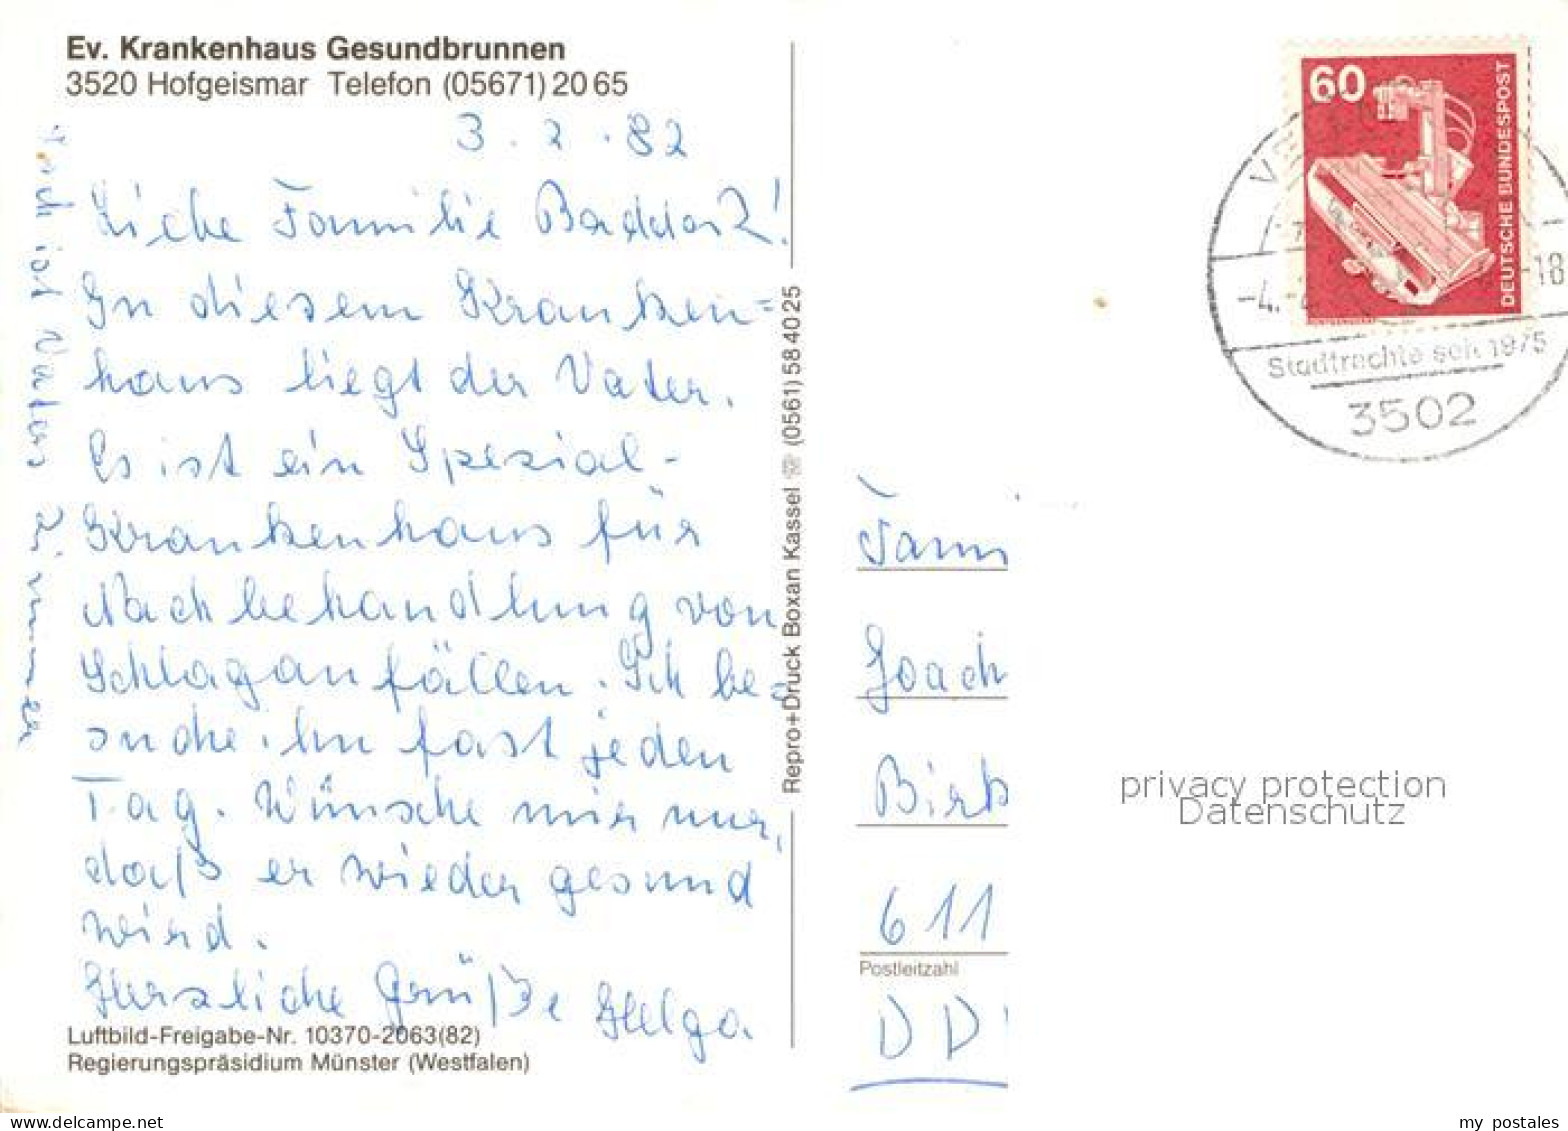 Ev. Krankenhaus Gesundbrunnen
3520 Hofgeismar Telefon (05671) 20 65
3. 2. 82
Liebe Familie
In diesem Kranken=
haus liegt der Vater.
Es ist ein Spezial-
Krankenhaus für
Nachbehandlung von
Schlaganfällen. Ich be=
suche ihn fast jeden
Tag. Wünsche mir nur,
daß er wieder gesund
wird.
Herzliche Grüße Helga
ist Vaters Zimmer
Luftbild-Freigabe-Nr. 10370-2063(82)
Regierungspräsidium Münster (Westfalen)
Repro+Druck Boxan Kassel ☏ (0561) 58 40 25
60
DEUTSCHE BUNDESPOST
-4.
-18
Stadtrechte seit 1975
3502
Fam
Joach
Birk
611
Postleitzahl
DD
privacy protection
Datenschutz
my postales